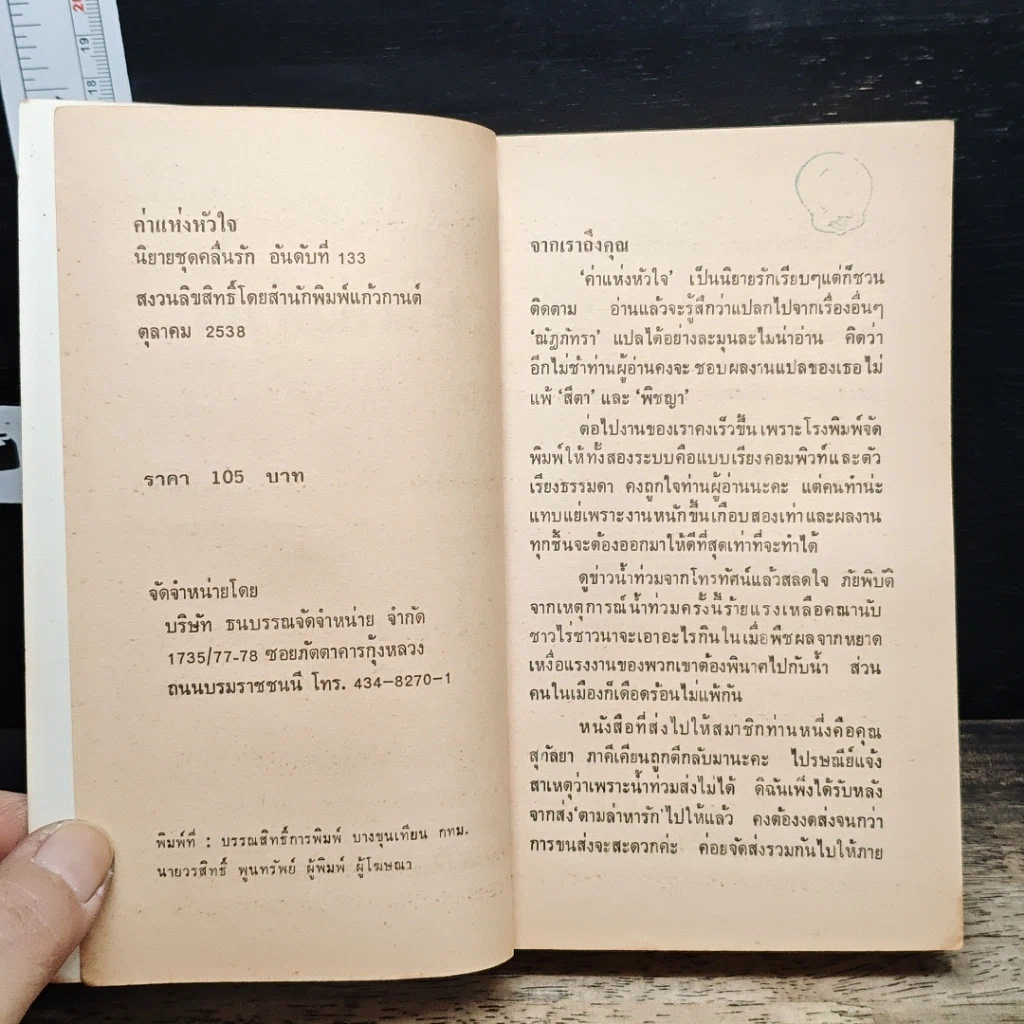 ค่าแห่งหัวใจ
นิยายชุดคลื่นรัก อันดับที่ 133
สงวนลิขสิทธิ์โดยสำนักพิมพ์แก้วกานต์
ตุลาคม 2538
ราคา 105 บาท
จัดจำหน่ายโดย
บริษัท ธนบรรณจัดจำหน่าย จำกัด
1735/77-78 ซอยภัตตาคารกุ้งหลวง
ถนนบรมราชชนนี โทร. 434-8270-1
พิมพ์ที่ : บรรณสิทธิ์การพิมพ์ บางขุนเทียน กทม.
นายวรสิทธิ์ พูนทรัพย์ ผู้พิมพ์ ผู้โฆษณา
จากเราถึงคุณ
'ค่าแห่งหัวใจ' เป็นนิยายรักเรียบๆแต่ก็ชวน
ติดตาม อ่านแล้วจะรู้สึกว่าแปลกไปจากเรื่องอื่นๆ
'ณัฎภัทรา' แปลได้อย่างละมุนละไมน่าอ่าน คิดว่า
อีกไม่ช้าท่านผู้อ่านคงจะชอบผลงานแปลของเธอไม่
แพ้ 'สีตา' และ 'พิชญา'
ต่อไปงานของเราคงเร็วขึ้นเพราะโรงพิมพ์จัด
พิมพ์ให้ทั้งสองระบบคือแบบเรียงคอมพิวท์และตัว
เรียงธรรมดา คงถูกใจท่านผู้อ่านนะคะ แต่คนทำน่ะ
แทบแย่เพราะงานหนักขึ้นเกือบสองเท่าและผลงาน
ทุกชิ้นจะต้องออกมาให้ดีที่สุดเท่าที่จะทำได้
ดูข่าวน้ำท่วมจากโทรทัศน์แล้วสลดใจ ภัยพิบัติ
จากเหตุการณ์น้ำท่วมครั้งนี้ร้ายแรงเหลือคณานับ
ชาวไร่ชาวนาจะเอาอะไรกินในเมื่อพืชผลจากหยาด
เหงื่อแรงงานของพวกเขาต้องพินาศไปกับน้ำ ส่วน
คนในเมืองก็เดือดร้อนไม่แพ้กัน
หนังสือที่ส่งไปให้สมาชิกท่านหนึ่งคือคุณ
สุกัลยา ภาคีเคียนถูกตีกลับมานะคะ ไปรษณีย์แจ้ง
สาเหตุว่าเพราะน้ำท่วมส่งไม่ได้ ดิฉันเพิ่งได้รับหลัง
จากส่ง'ตามล่าหารัก'ไปให้แล้ว คงต้องงดส่งจนกว่า
การขนส่งจะสะดวกค่ะ ค่อยจัดส่งรวมกันไปให้ภาย